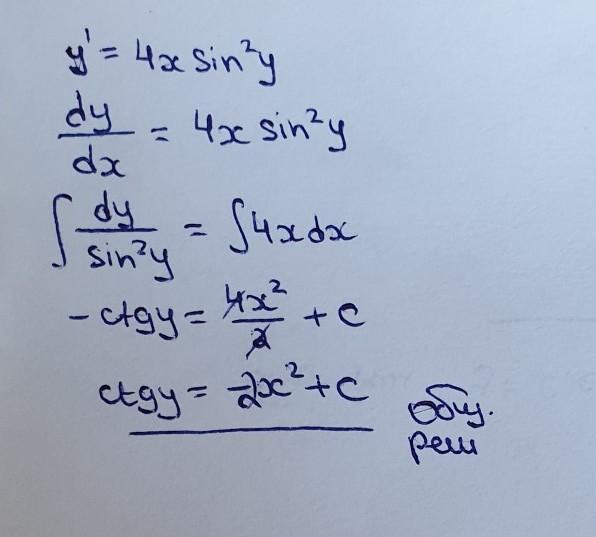 y' = 4x sin²y
dy/dx = 4x sin²y
∫ dy/sin²y = ∫4xdx
-ctgy = 4x²/2 + c
ctgy = -2x² + c
общ.
реш